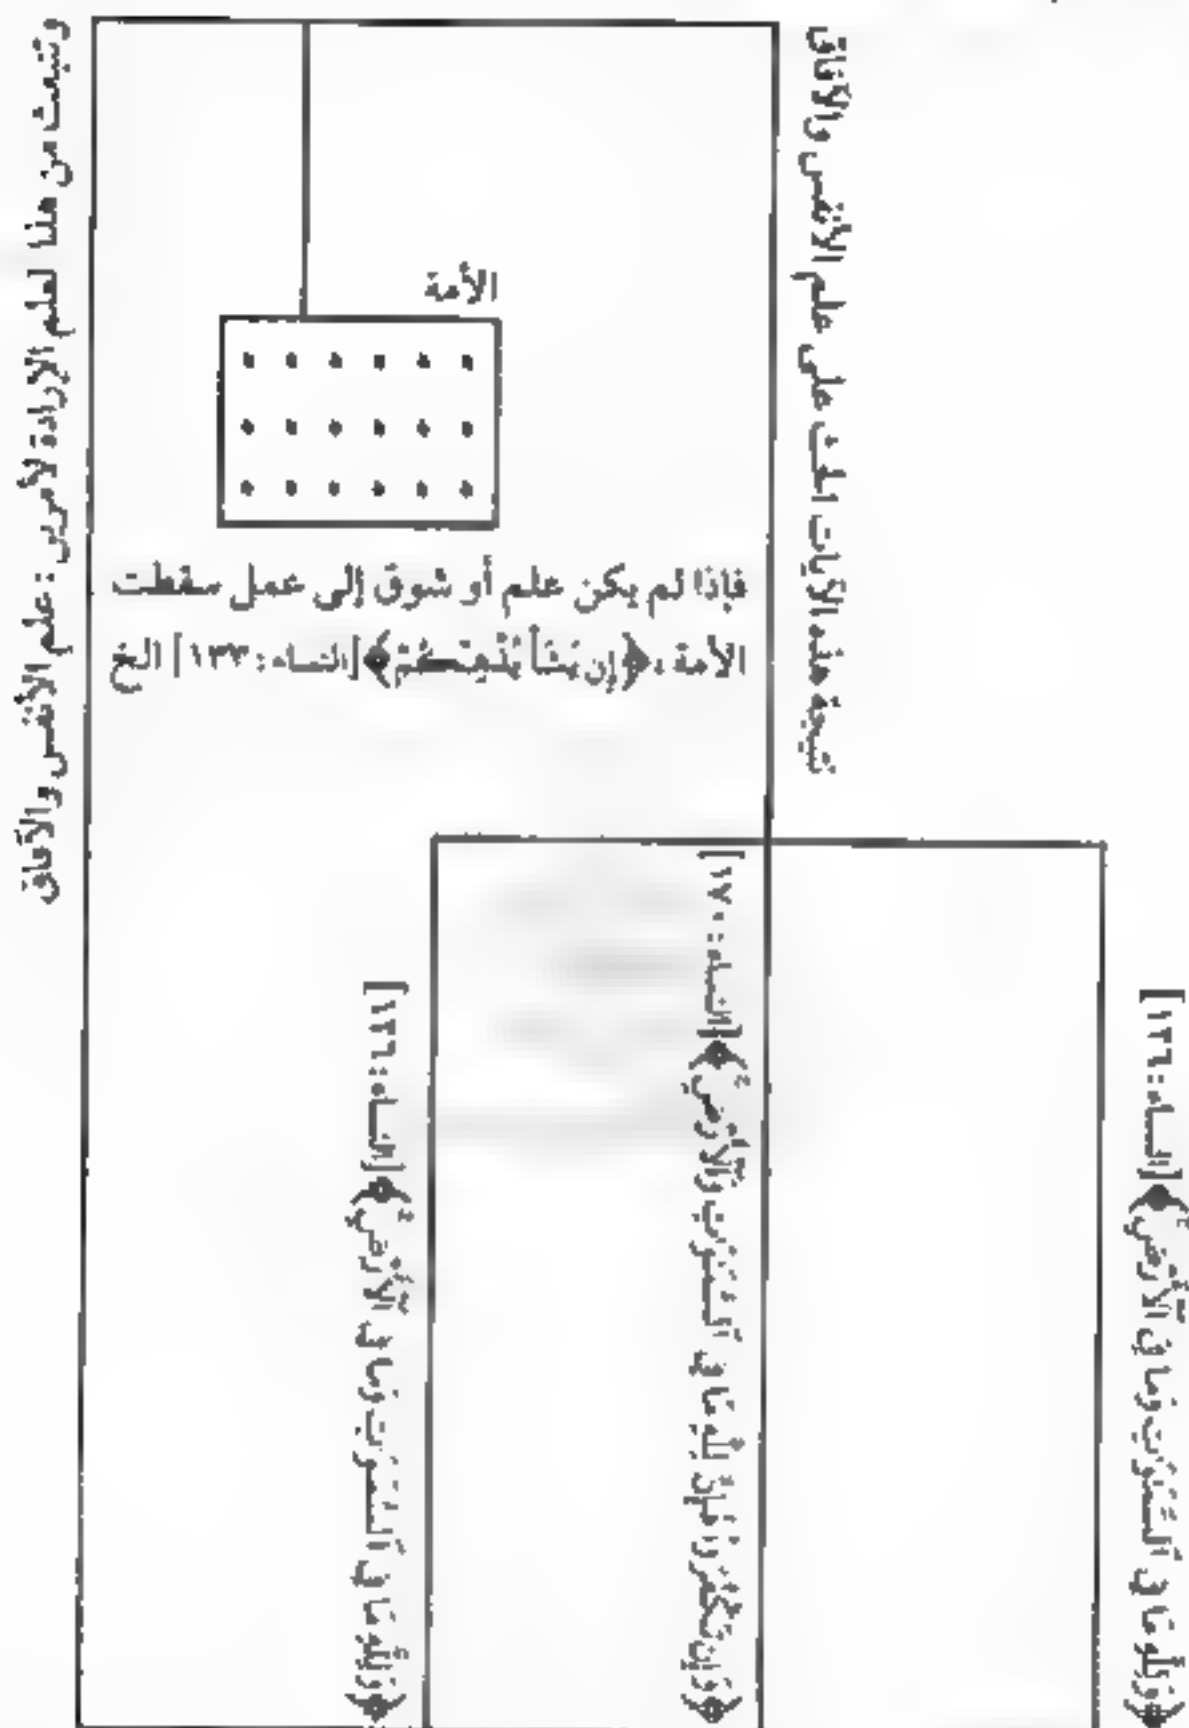 نتيجة هذه الآيات الحث على علم الأنفس والآفاق
الأمة
فإذا لم يكن علم أو شوق إلى عمل سقطت
الأمة، ﴿إِن يَشَأْ يُذْهِبْكُمْ﴾ [النساء: ١٣٣] الخ
وتنبعث من هنا لعلم الإرادة لأمرين: علم الأنفس والآفاق
﴿وَلِلَّهِ مَا فِي ٱلسَّمَٰوَٰتِ وَمَا فِي ٱلْأَرْضِ﴾ [النساء: ١٢٦]
﴿وَإِن تَكْفُرُوا۟ فَإِنَّ لِلَّهِ مَا فِي ٱلسَّمَٰوَٰتِ وَٱلْأَرْضِ﴾ [النساء: ١٧٠]
﴿وَلِلَّهِ مَا فِي ٱلسَّمَٰوَٰتِ وَمَا فِي ٱلْأَرْضِ﴾ [النساء: ١٢٦]